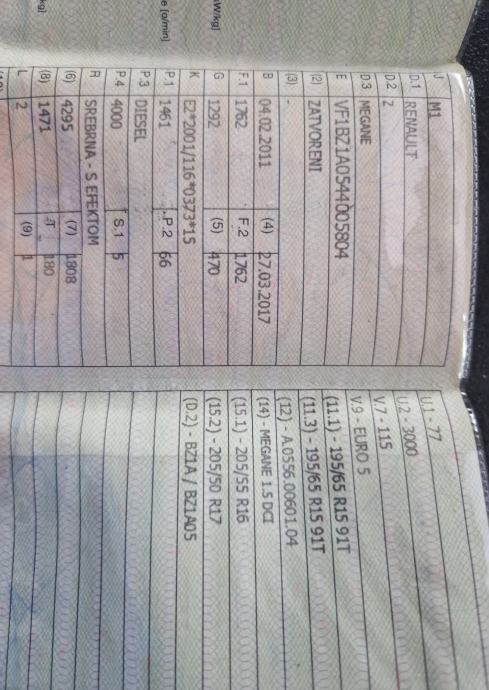 J M1
D.1 RENAULT
D.2 Z
D.3 MEGANE
E VF1BZ1A0544005804
(2) ZATVORENI
(3) -
B 04.02.2011 (4) 27.03.2017
F.1 1762 F.2 1762
G 1292 (5) 470
K E2*2001/116*0373*15
P.1 1461 P.2 66
P.3 DIESEL
P.4 4000 S.1 5
R SREBRNA - S EFEKTOM
(6) 4295 (7) 1808
(8) 1471 T 180
L 2 (9) 1
U.1 - 77
U.2 - 3000
V.7 - 115
V.9 - EURO 5
(11.1) - 195/65 R15 91T
(11.3) - 195/65 R15 91T
(12) - A.0556.00601.04
(14) - MEGANE 1.5 DCI
(15.1) - 205/55 R16
(15.2) - 205/50 R17
(D.2) - BZ1A / BZ1A05
kW/kg]
e [o/min]
kg]